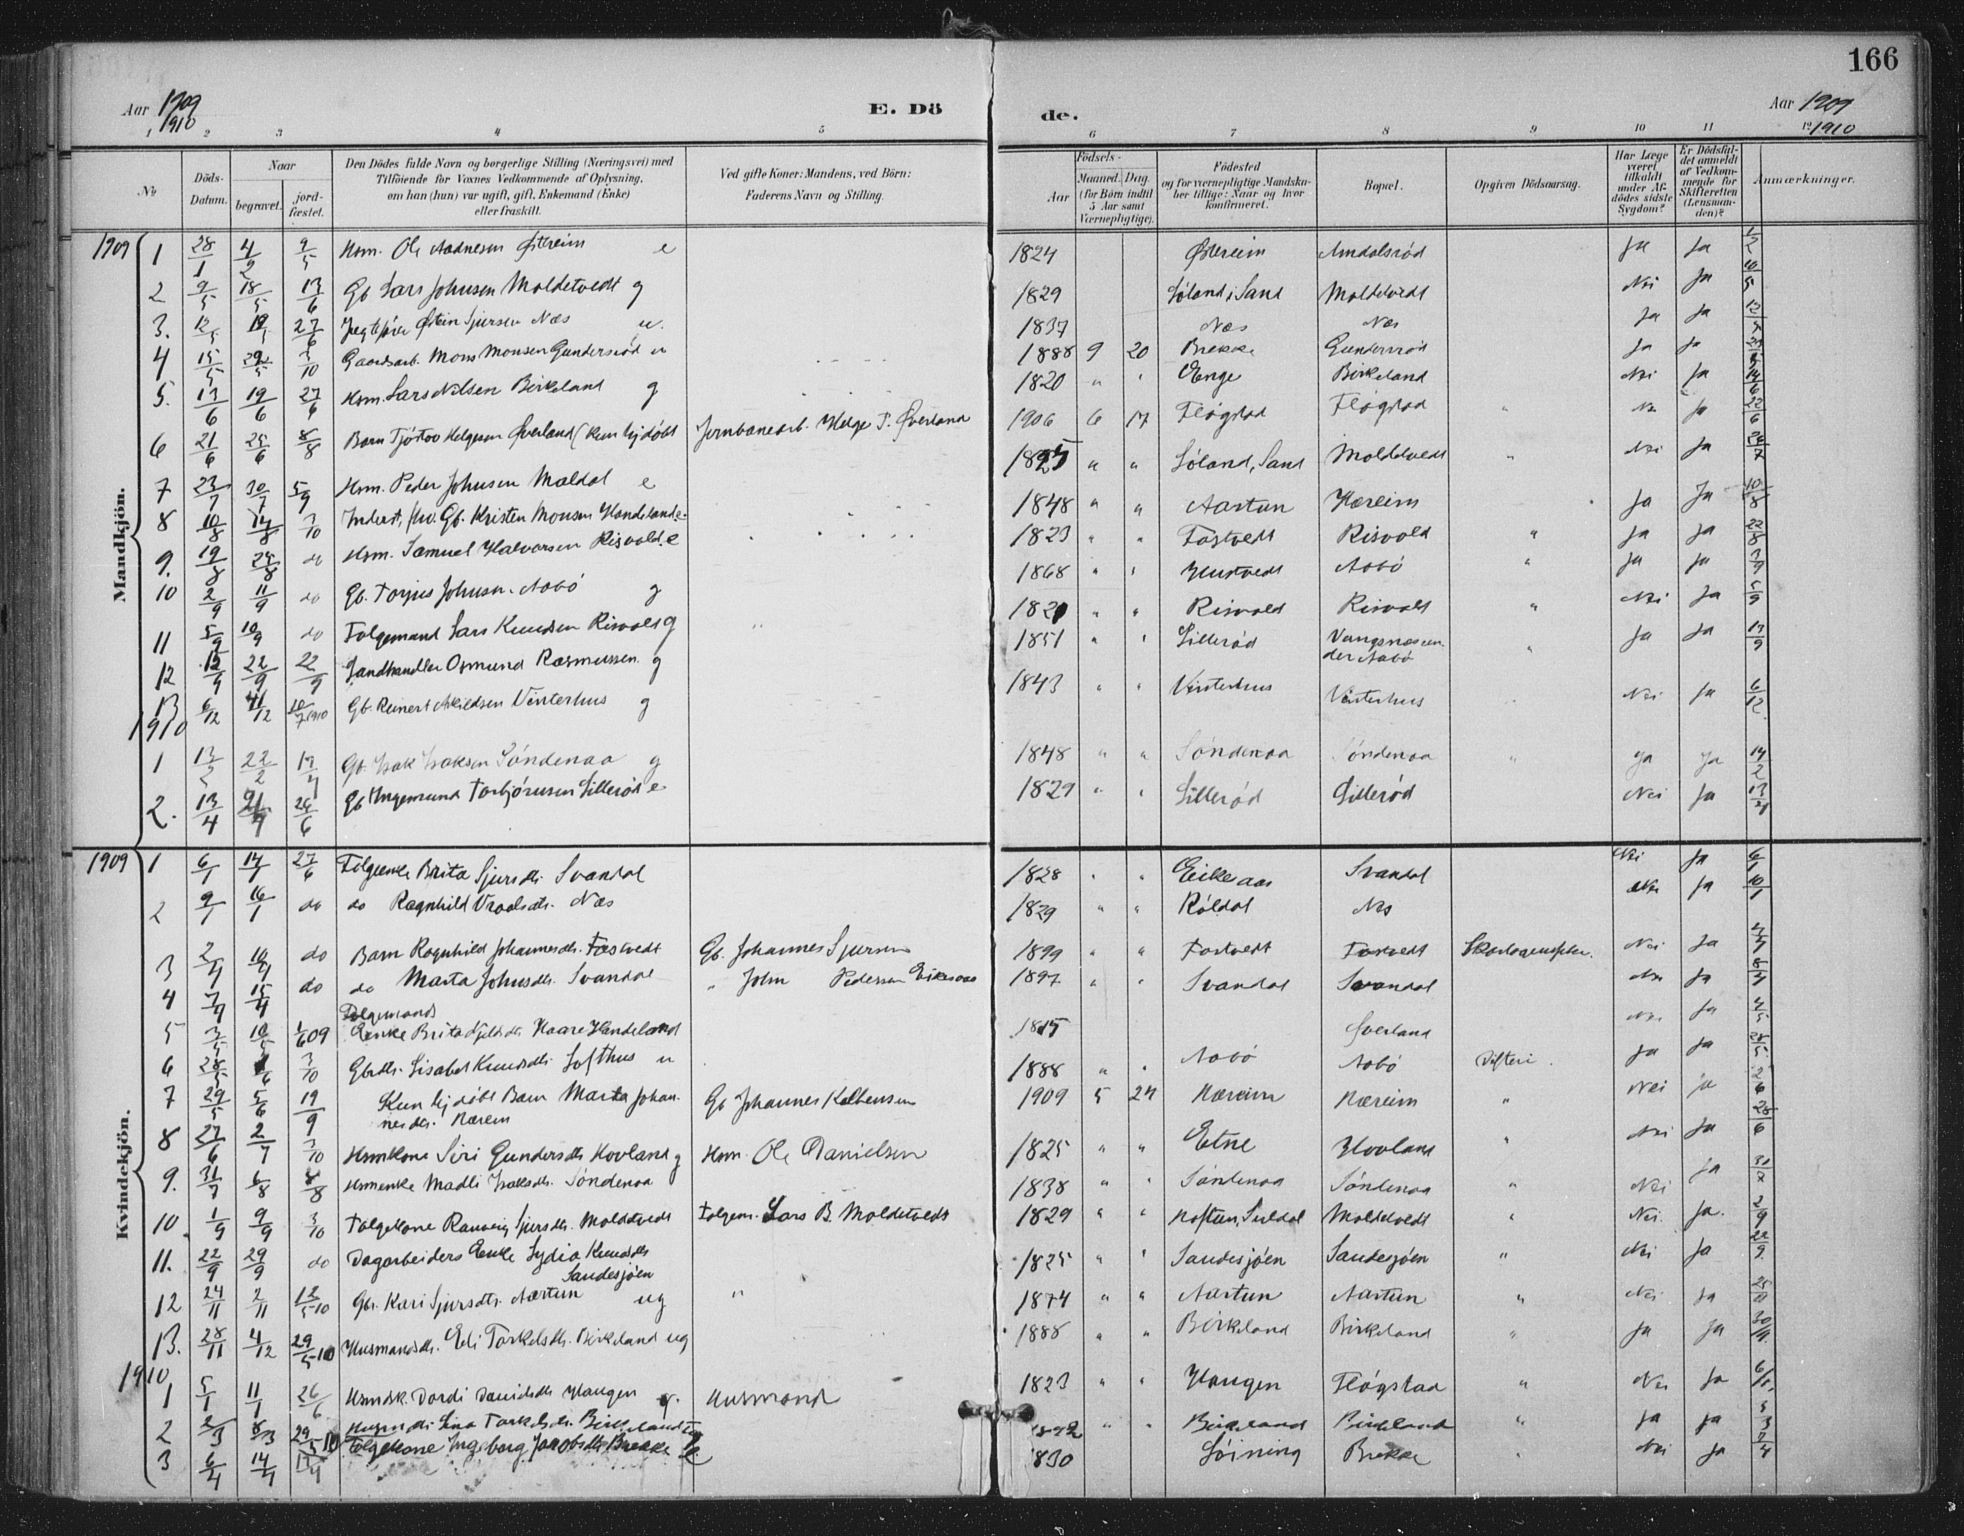 166
Aar 1909 1910
E. Dö de.
Aar 1909 1910
1 2 3 4 5 6 7 8 9 10 11 12
No
Döds-Datum.
Naar
begravet.
jord-fæstet.
Den Dödes fulde Navn og borgerlige Stilling (Næringsvei) med
Tilföiende for Voxnes Vedkommende af Oplysning,
om han (hun) var ugift, gift, Enkemand (Enke)
eller fraskilt.
Ved gifte Koner: Mandens, ved Börn:
Faderens Navn og Stilling.
Födsels-
Aar
Maaned. Dag.
(for Börn indtil
5 Aar samt
Værnepligtige).
Födested
og for værnepligtige Mandska-
ber tillige: Naar og hvor
konfirmeret.
Bopæl.
Opgiven Dödsaarsag.
Har Læge
været
tilkaldt
under Af-
dödes sidste
Sygdom?
Er Dödsfal-
det anmeldt
af Vedkom-
mende for
Skifteretten
(Lensman-
den)?
Anmærkninger.
Mandkjön.
1909 1 28/1 4/2 9/5 Hsm. Ole Aadnesen Østreim e 1824 Østreim Amdalsrød Ja Ja
2 9/5 18/5 13/6 Gb. Lars Johnsen Moldetvedt g 1829 Løland i Sand Moldetvedt Nei Ja 10/5
3. 12/5 19/5 27/6 Østein Sjursen Næs u. 1837 Næs Næs Ja Ja
4 15/5 29/5 3/10 Gaardsarb. Mons Monsen Gundersrød u 1888 9 20 Brekke Gundersrød Ja Ja
5. 13/6 19/6 27/6 Hsm. Lars Nilsen Birkeland g 1820 " " Enge Birkeland Nei Ja 14/6
6 21/6 25/6 8/8 Barn Tjøstov Helgesen Øverland (kun hj.døbt Jernbanearb. Helge T. Øverland 1906 6 17 Fløgstad Fløgstad " Nei Ja 22/6
7 23/7 30/7 5/9 Hsm. Peder Johnsen Maldal e " " Løland, Sand Moldetvedt " Nei Ja
8 10/8 14/8 3/10 Gb. Kristen Monsen Handeland e. 1848 " " Aartun Hæreim Ja Ja 10/8
9. 19/8 24/8 do Hsm. Samuel Halvorsen Risvold. e 1823 " " Fostvedt Risvold " Ja Ja 22/8
10 2/9 11/9 do Gb. Torjus Johnsen Aabø g 1868 " " Hustvedt Aabø " Ja Ja 3/9
11 5/9 10/9 do Folgemand Lars Knudsen Risvold g " 1821 " " Risvold Risvold " Nei Ja 5/9
12 12/9 22/9 22/9 Landhandler Osmund Rasmussen g 1851 " " Lillerød Vangsnes un-
der Aabø " Ja Ja 13/9
13 6/12 11/12 10/7 1910 Gb. Reinert Vinterhus g 1843 " " Vinterhus Vinterhus Nei Ja 6/12.
1910
1 13/2 22/2 17/4 Gb. Isak Isaksen Søndenaa g 1848 " " Søndenaa Søndenaa " Ja Ja 14/2
2. 13/4 21/4 26/6 Gb Ingemund Torbjørnsen Lillerød e 1829 " " Lillerød Lillerød Nei Ja 13/4
Kvindekjön.
1909 1 6/1 14/1 27/6 Folgeenke Brita Sjursdtr. Svandal 1828 " " Eikeaas Svandal Nei Ja 6/1
2 9/1 16/1 do do Ragnhild Vraalsdtr. Næs 1829 " " Røldal Næs Nei Ja 10/1
3 2/4 10/4 do Barn Ragnhild Johannesdtr. Fostvedt Gb. Johannes Sjursen 1899 " " Fostvedt Fostvedt Skarlagensfeber. Nei Ja
4 7/4 15/4 do do Marta Johnsdtr. Svandal " John Pedersen Eikeaas 1897 " " Svandal Svandal Nei Ja 8/4
5 3/5 10/5 1/6 09 Folgemands
Enke Brita Handeland 1815 Øverland Nei Ja 4/5
6 28/5 /6 3/10 Gbrdtr. Lisabet Knudsdtr. Lofthus u 1888 " " Aabø Aabø Difteri. Ja Ja
7 29/5 5/6 19/9 Kun hj.døbt Barn Marta Johan-
nesdtr. Næreim Gb Johannes Kolbensen 1909 5 24 Næreim Næreim " Nei Ja 2/6
8 27/6 2/7 3/10 Hsmkone Siri Gundersdtr Hovland g Hsm. Ole Danielsen 1825 " " Etne Hovland " Nei Ja 28/6
9. 31/7 6/8 8/8 Hsmenke Madli Isaksdtr. Søndenaa 1838 " " Søndenaa Søndenaa " Nei Ja 31/7
10. 1/9 9/9 3/10 Folgekone Ranveig Sjursdtr. Moldetvedt Folgem. Lars B. Moldetvedt 1829 " " Suldal Moldetvedt " Nei. Ja. 2/9
11. 22/9 29/9 do Dagarbeiders Enke Lydia Knudsdtr
Sandesjøen 1825 " " Sandesjøen Sandesjøen " Nei Ja 22/9.
12 24/11 2/11 12/5-10 Gbr. Kari Sjursdtr. Aartun ug " 1874 " " Aartun Aartun " Nei Ja 25/11
13. 28/11 4/12 29/5-10 Husmandsdtr. Eli Torkelsdtr. Birkeland ug 1888 " " Birkeland Birkeland " Ja Ja 30/11.
1910
1 5/1 11/1 26/6 Hsmdsk. Dordi Danielsdtr Haugen g. Husmand 1823 " " Haugen Fløgstad " Nei Ja 6/1.
2 2/3 8/3 29/5-10 Lina Torkelsdtr. Birkeland " " Birkeland Birkeland " Ja Ja
3 6/4 14/4 17/4 Folgekone Ingeborg Jacobsdtr Brekke 1830 Løining Brekke " Nei Ja 7/4